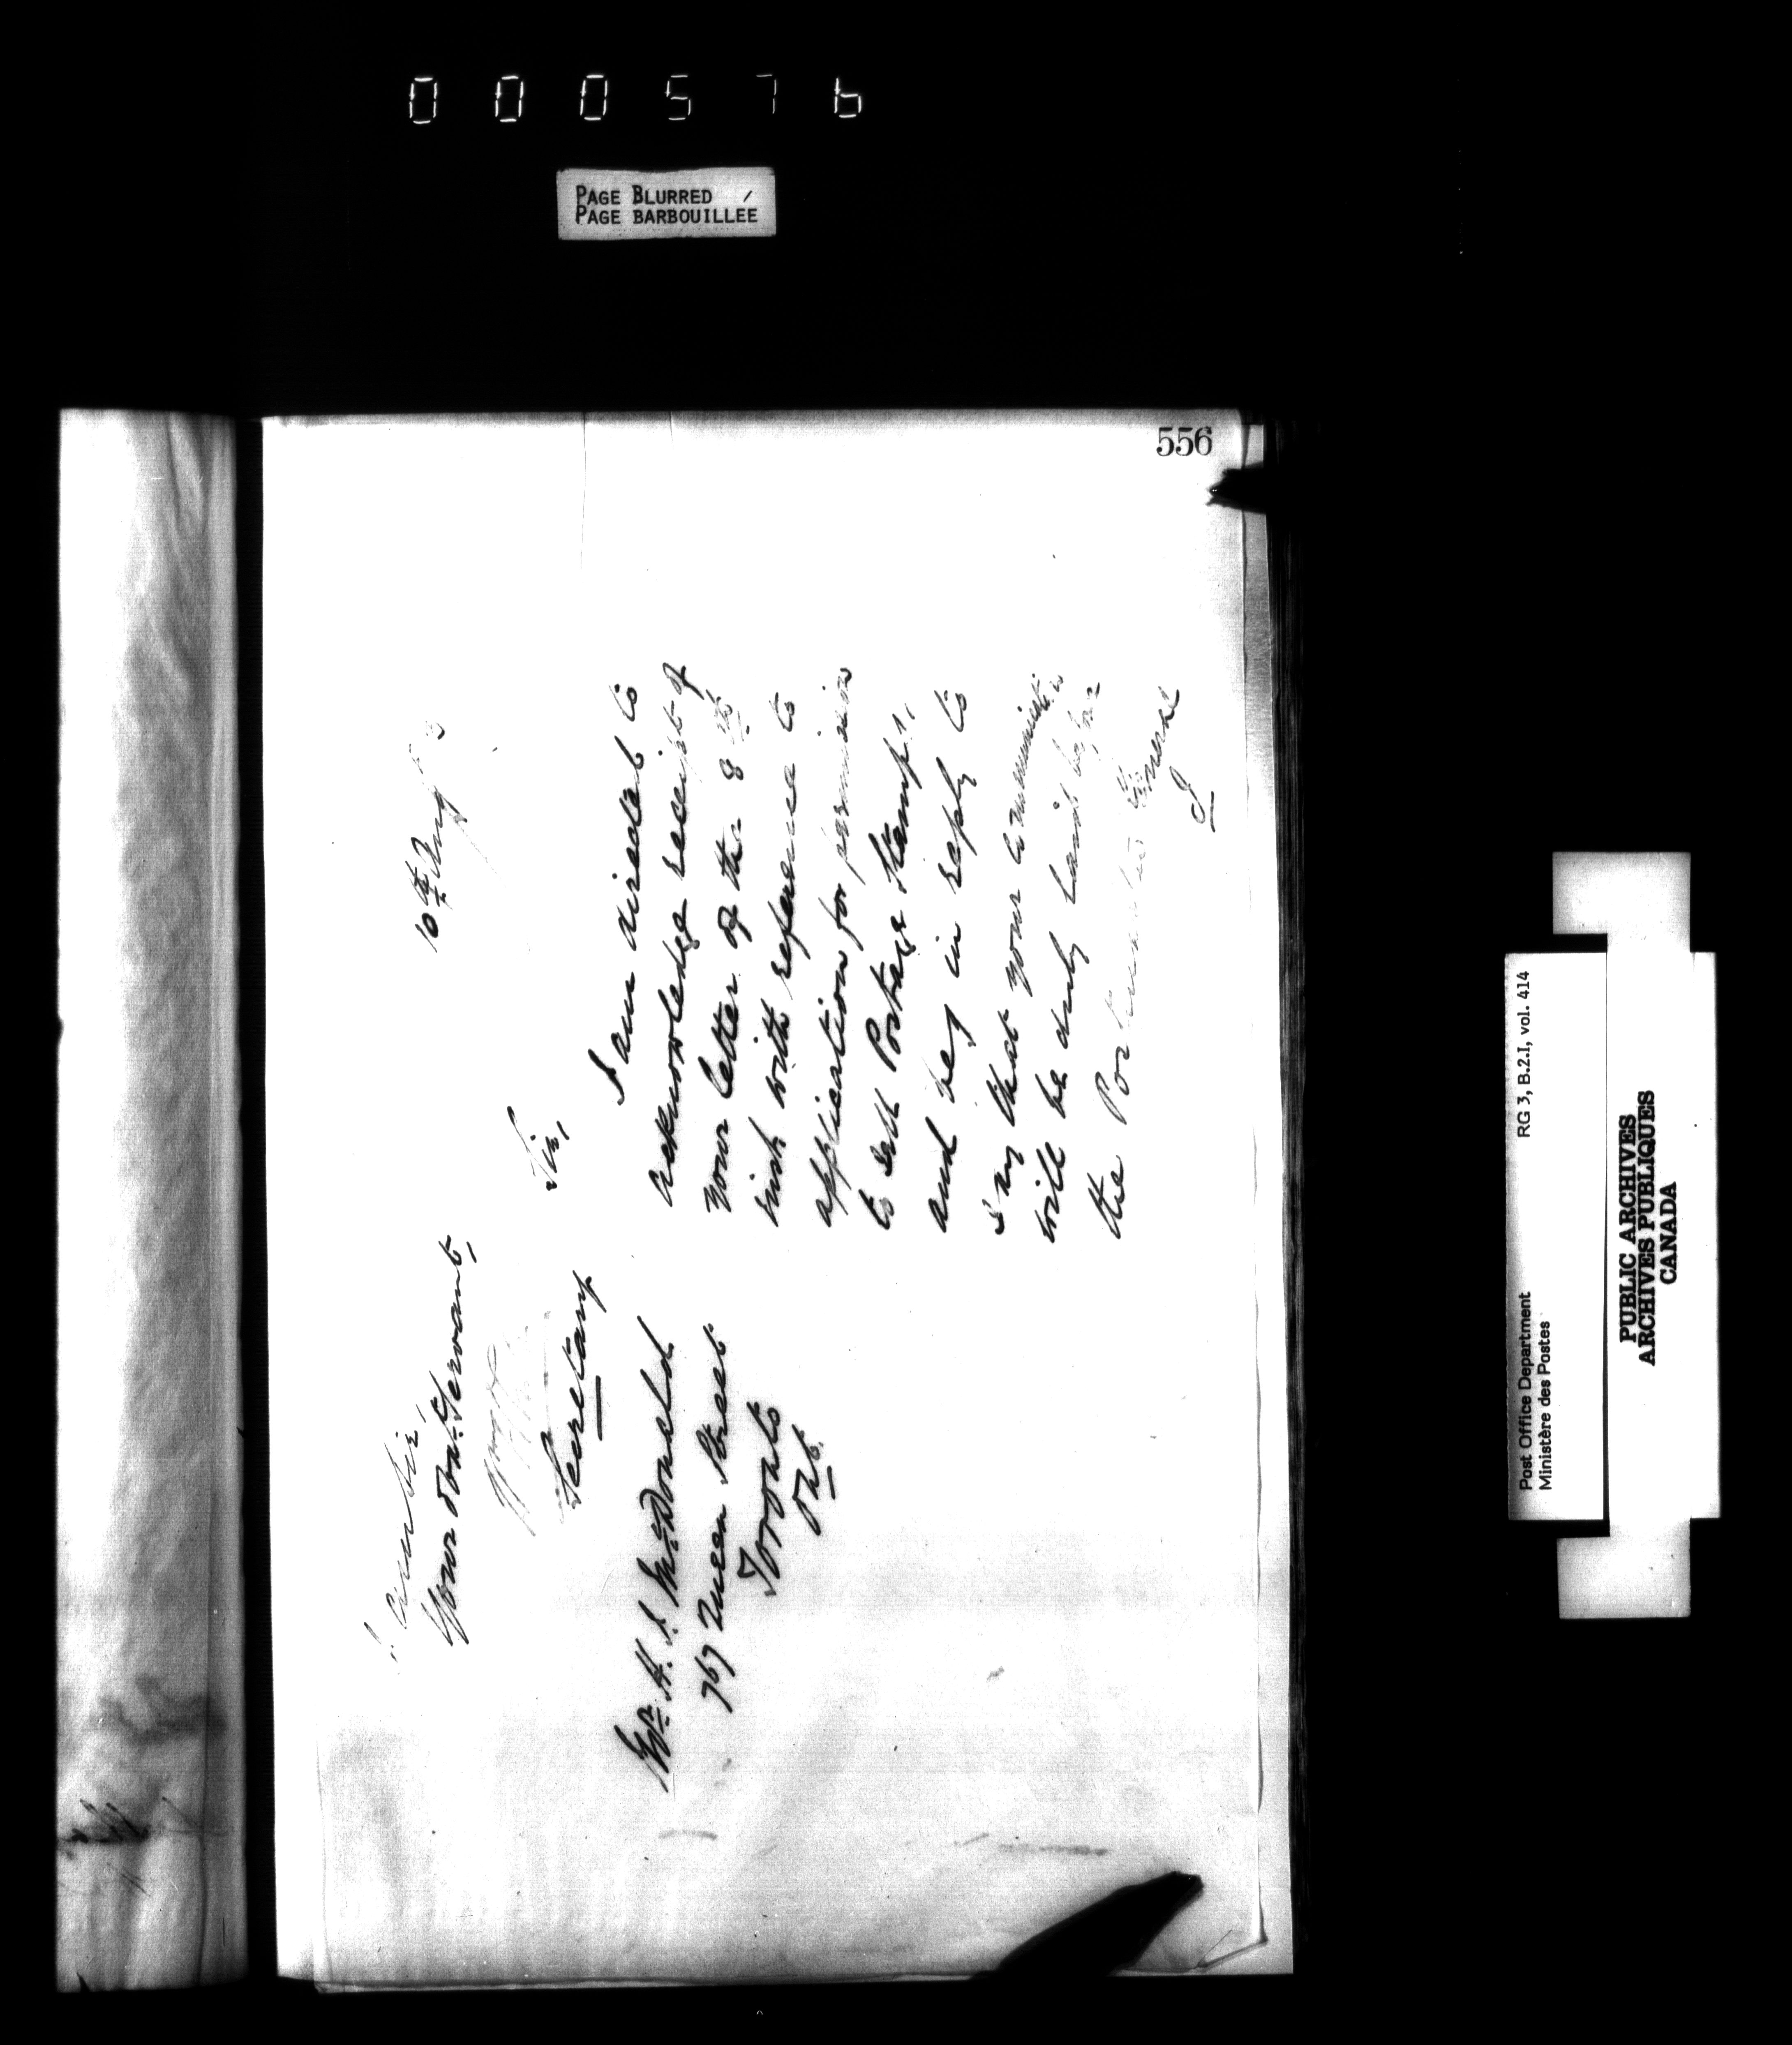 000576
PAGE BLURRED
PAGE BARBOUILLÉE
556
10th Augt
Sir,
I am directed to
acknowledge receipt of
your letter of the 8th
inst. with reference to
application for permission
to sell Postage Stamps,
and beg in reply to
say that your communication
will be duly laid before
the Postmaster General
I
am Sir,
Your Obdt. Servant,
Secretary
Mr. H. S. McDonald
767 Queen Street
Toronto
Ont.
Post Office Department
Ministère des Postes
RG 3, B.2.I, vol. 414
PUBLIC ARCHIVES
ARCHIVES PUBLIQUES
CANADA